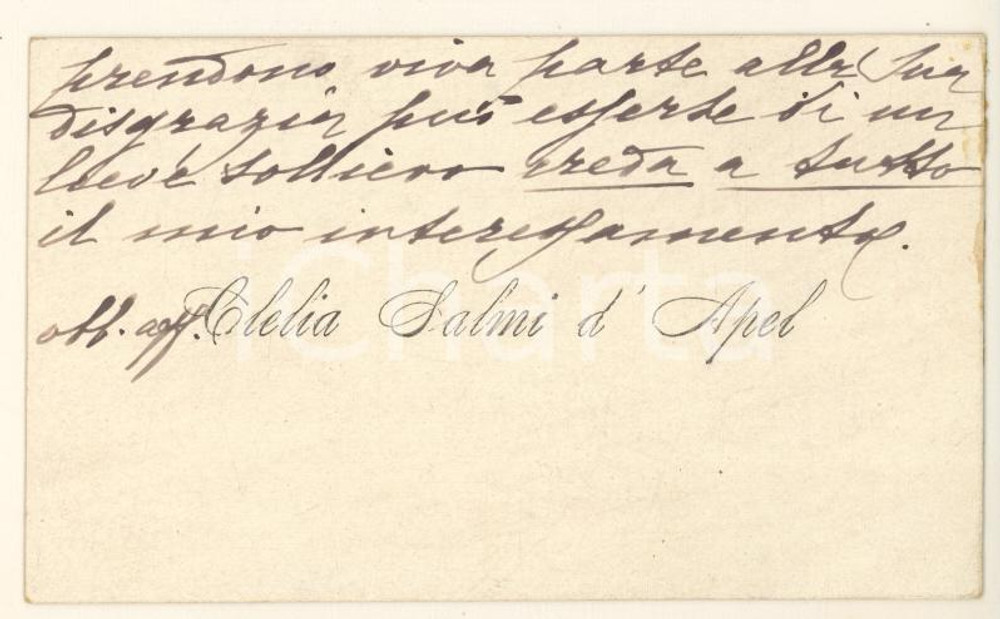 prendono viva parte alla Sua
disgrazia può esserle di un
lieve sollievo creda a tutto
il mio interessamento.
obb. aff. Clelia Salmi d'Apel
iCharta